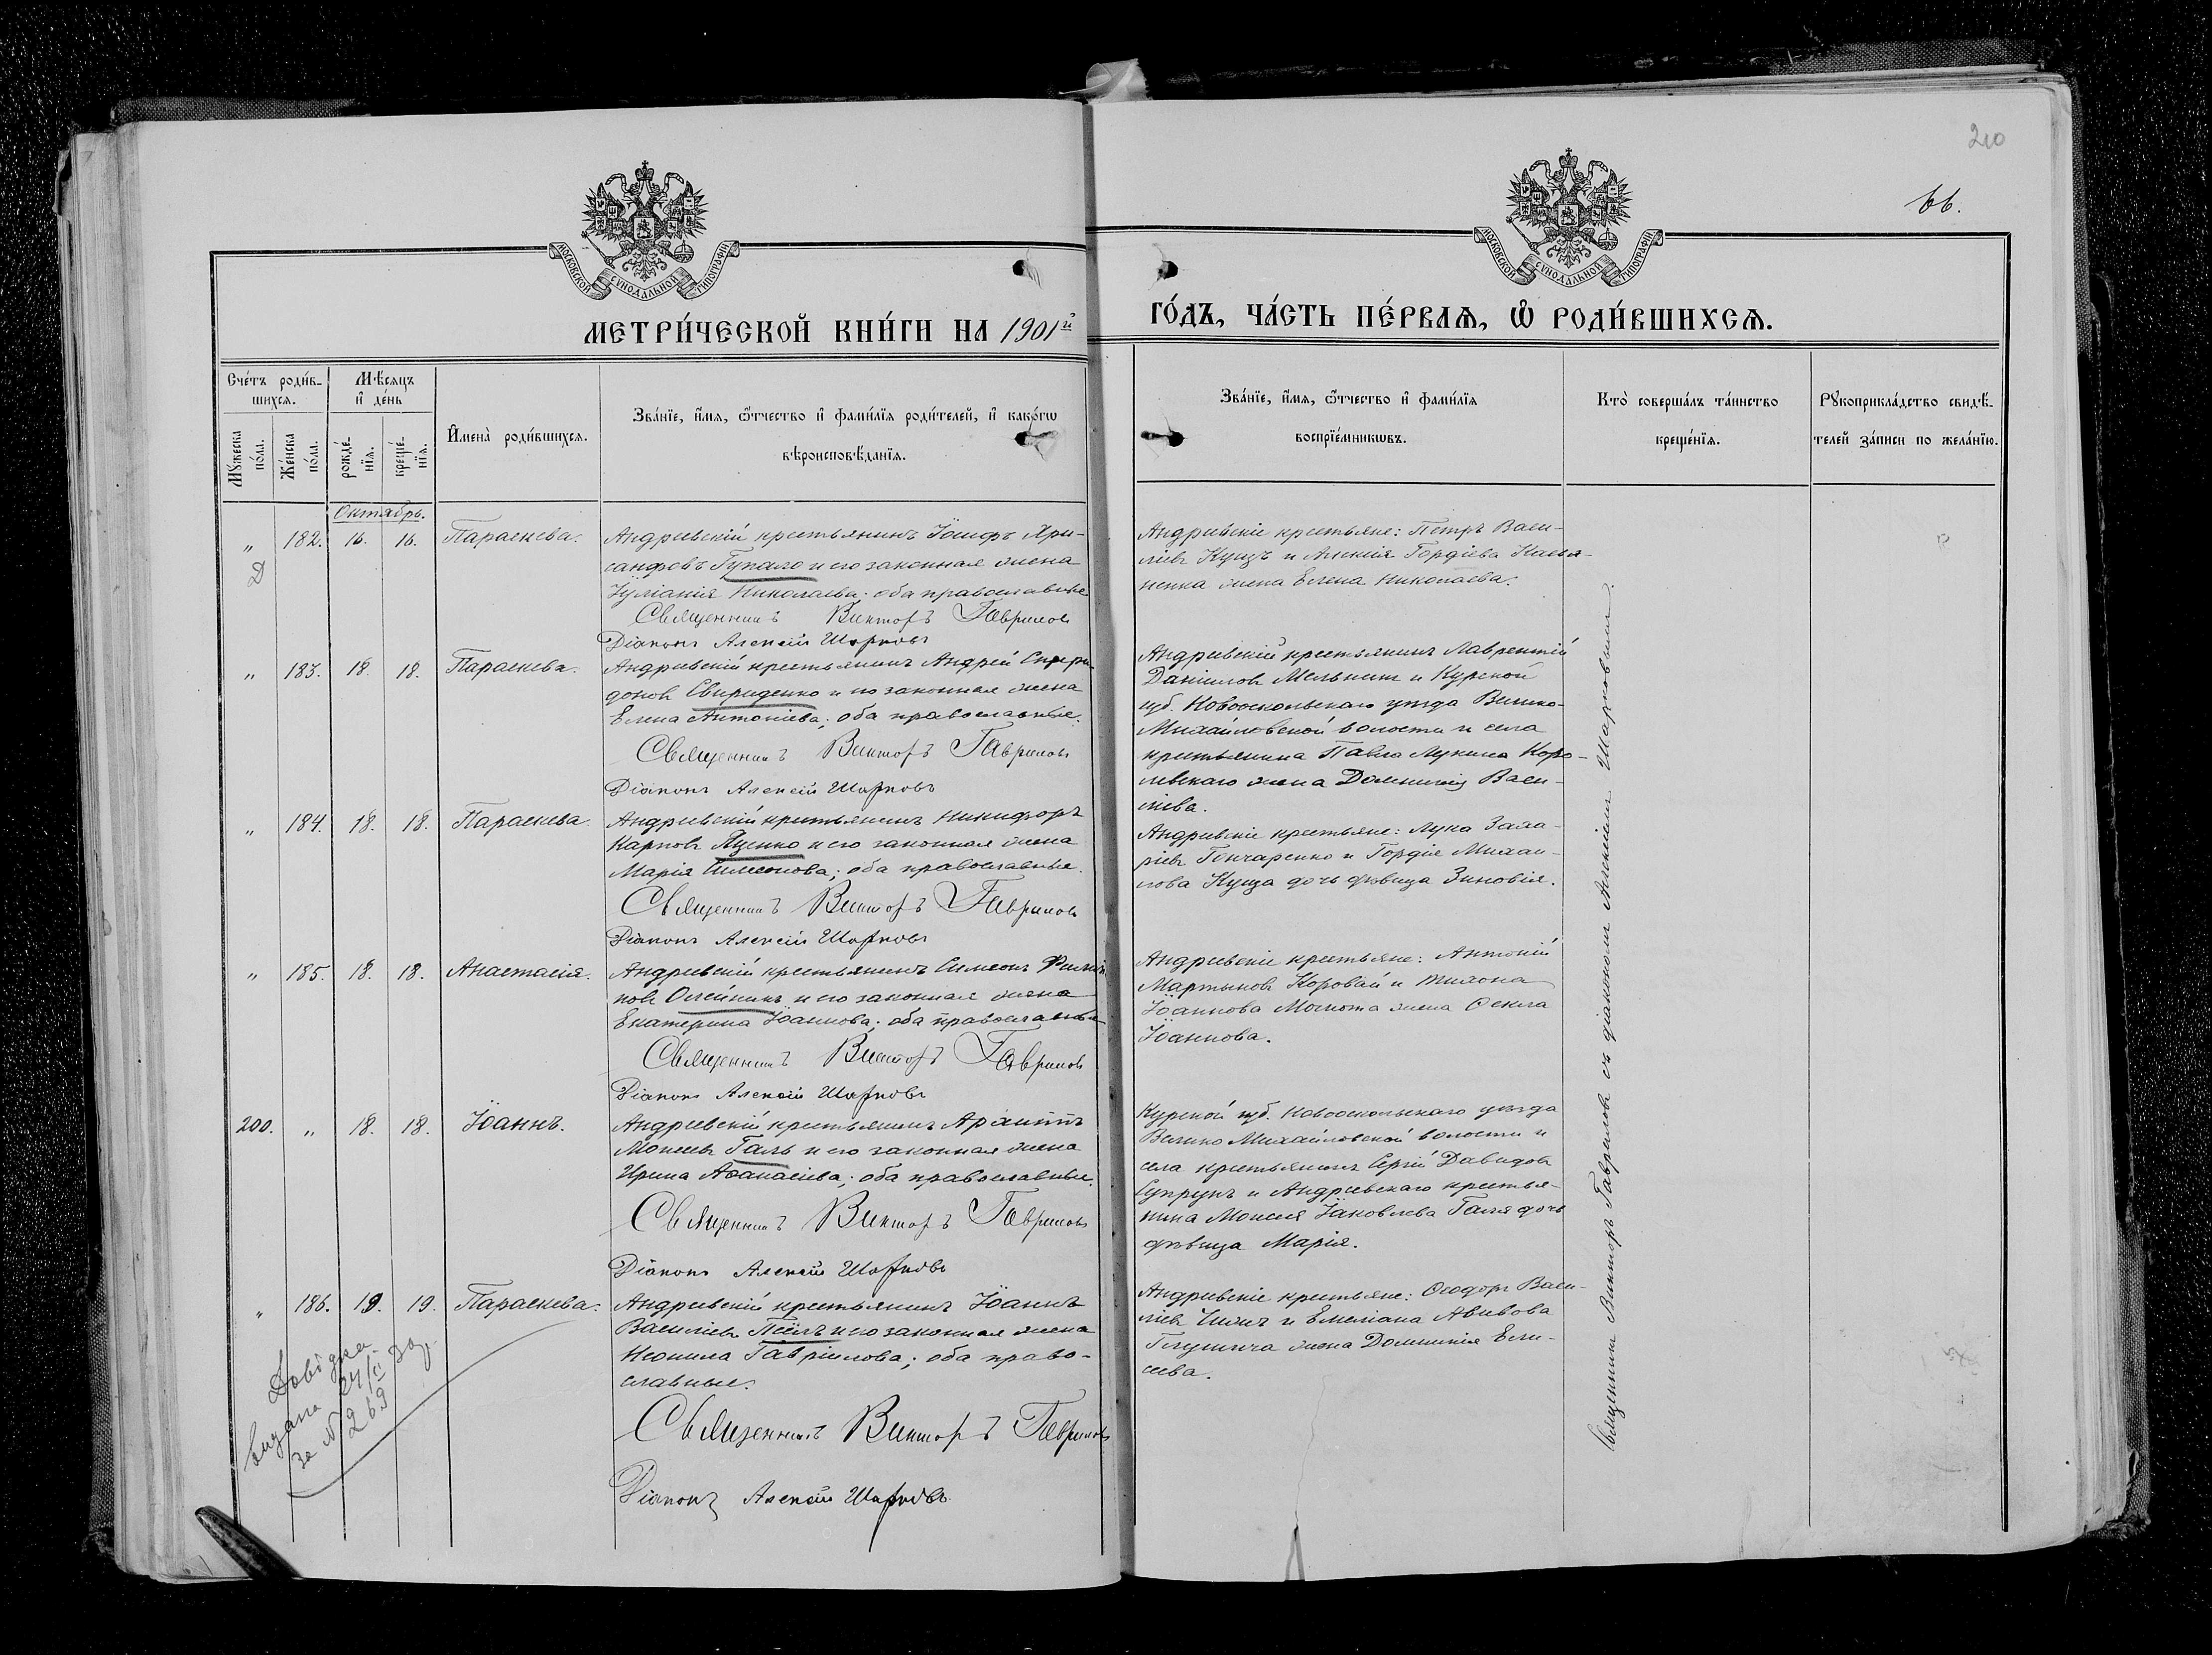 210
66.
МОСКОВСКОЙ СУНОДАЛЬНОЙ ТИПОГРАФІИ
МОСКОВСКОЙ СУНОДАЛЬНОЙ ТИПОГРАФІИ
МЕТРИ́ЧЕСКОЙ КНИ́ГИ НА 1901й
ГО́ДЪ, ЧА́СТЬ ПЕ́РВАѦ, Ѽ РОДИ́ВШИХСѦ.
Сче́тъ роди́в-
шихсѧ.
Мѣсѧцъ
и де́нь
Мꙋжеска
по́ла.
Же́нска
по́ла.
рожде́-
нїѧ.
креще́-
нїѧ.
Имена̀ роди́вшихсѧ.
Зва́нїе, и́мѧ, ѻ́тчество и фами́лїѧ роди́телей, и како́гѡ
вѣроисповѣ́данїѧ.
Зва́нїе, и́мѧ, ѻ́тчество и фами́лїѧ
воспрїе́мникѡвъ.
Кто̀ соверша́лъ та́инство
креще́нїѧ.
Рꙋкоприкла́дство свидѣ́-
телей за́писи по жела́нїю.
Октябрь.
" 182. 16. 16. Параскева.
Д
Андреевскій крестьянинъ Іосифъ Хри-
санфовъ Гупало и его законная жена
Іуліанія Николаева; оба православные
Священникъ Викторъ Гавриловъ
Діаконъ Алексій Шарковъ
Андреевскіе крестьяне: Петръ Васи-
ліев Куцъ и Алексія Гордіева
жена Елена Николаева.
" 183. 18. 18. Параскева.
Андреевскій крестьянинъ Андрей Спири-
доновъ Свириденко и его законная жена
Елена Антоніева; оба православные.
Священникъ Викторъ Гавриловъ
Діаконъ Алексій Шарковъ
Андреевскій крестьянинъ Лаврентій
Даніиловъ Мельникъ и Курской
губ. Новооскольскаго уѣзда Велико-
Михайловской волости и села
крестьянина Павла Лукина Коро-
левскаго жена Домникія Васи-
ліева.
" 184. 18. 18. Параскева.
Андреевскій крестьянинъ Никифоръ
Карповъ Яценко и его законная жена
Марія Симеонова; оба православные.
Священникъ Викторъ Гавриловъ
Діаконъ Алексій Шарковъ
Андреевскіе крестьяне: Лука Заха-
ріевъ Гончаренко и Гордія Михаи-
лова Куца дочь дѣвица Зиновія.
" 185. 18. 18. Анастасія.
Андреевскій крестьянинъ Симеонъ
Олейникъ и его законная жена
Екатерина Іоаннова; оба православные
Священникъ Викторъ Гавриловъ
Діаконъ Алексій Шарковъ
Андреевскіе крестьяне: Антоній
Мартыновъ Коровай и Тихона
Іоаннова жена Ѳекла
Іоаннова.
200. " 18. 18. Іоаннъ.
Андреевскій крестьянинъ
Моисеевъ Галь и его законная жена
Ирина Аѳанасіева; оба православные.
Священникъ Викторъ Гавриловъ
Діаконъ Алексій Шарковъ
Курской губ. Новооскольскаго уѣзда
Велико Михайловской волости и
села крестьянинъ Сергій Давидовъ
Супрунъ и Андреевскаго крестья-
нина Моисея Іаковлева Галя дочь
дѣвица Марія.
" 186. 19. 19. Параскева.
Андреевскій крестьянинъ Іоаннъ
Василіевъ и его законная жена
Неонила Гавріилова; оба право-
славные.
Священникъ Викторъ Гавриловъ
Діаконъ Алексій Шарковъ
Андреевскіе крестьяне: Ѳеодоръ Васи-
ліевъ и Емеліана
жена Домникія Ели-
сеева.
Довідка
видана
за № 269
Священникъ Викторъ Гавриловъ съ діакономъ Алексіемъ Шарковымъ.